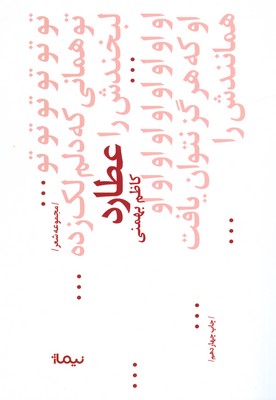 تو تو تو تو تو تو تو ...
تو همانی که دلم لک زده
لبخندش را ...
او او او او او او او او او
او که هرگز نتوان یافت
همانندش را ...
عطارد
کاظم بهمنی
/ مجموعه شعر /
/ چاپ چهاردهم /
نیماژ